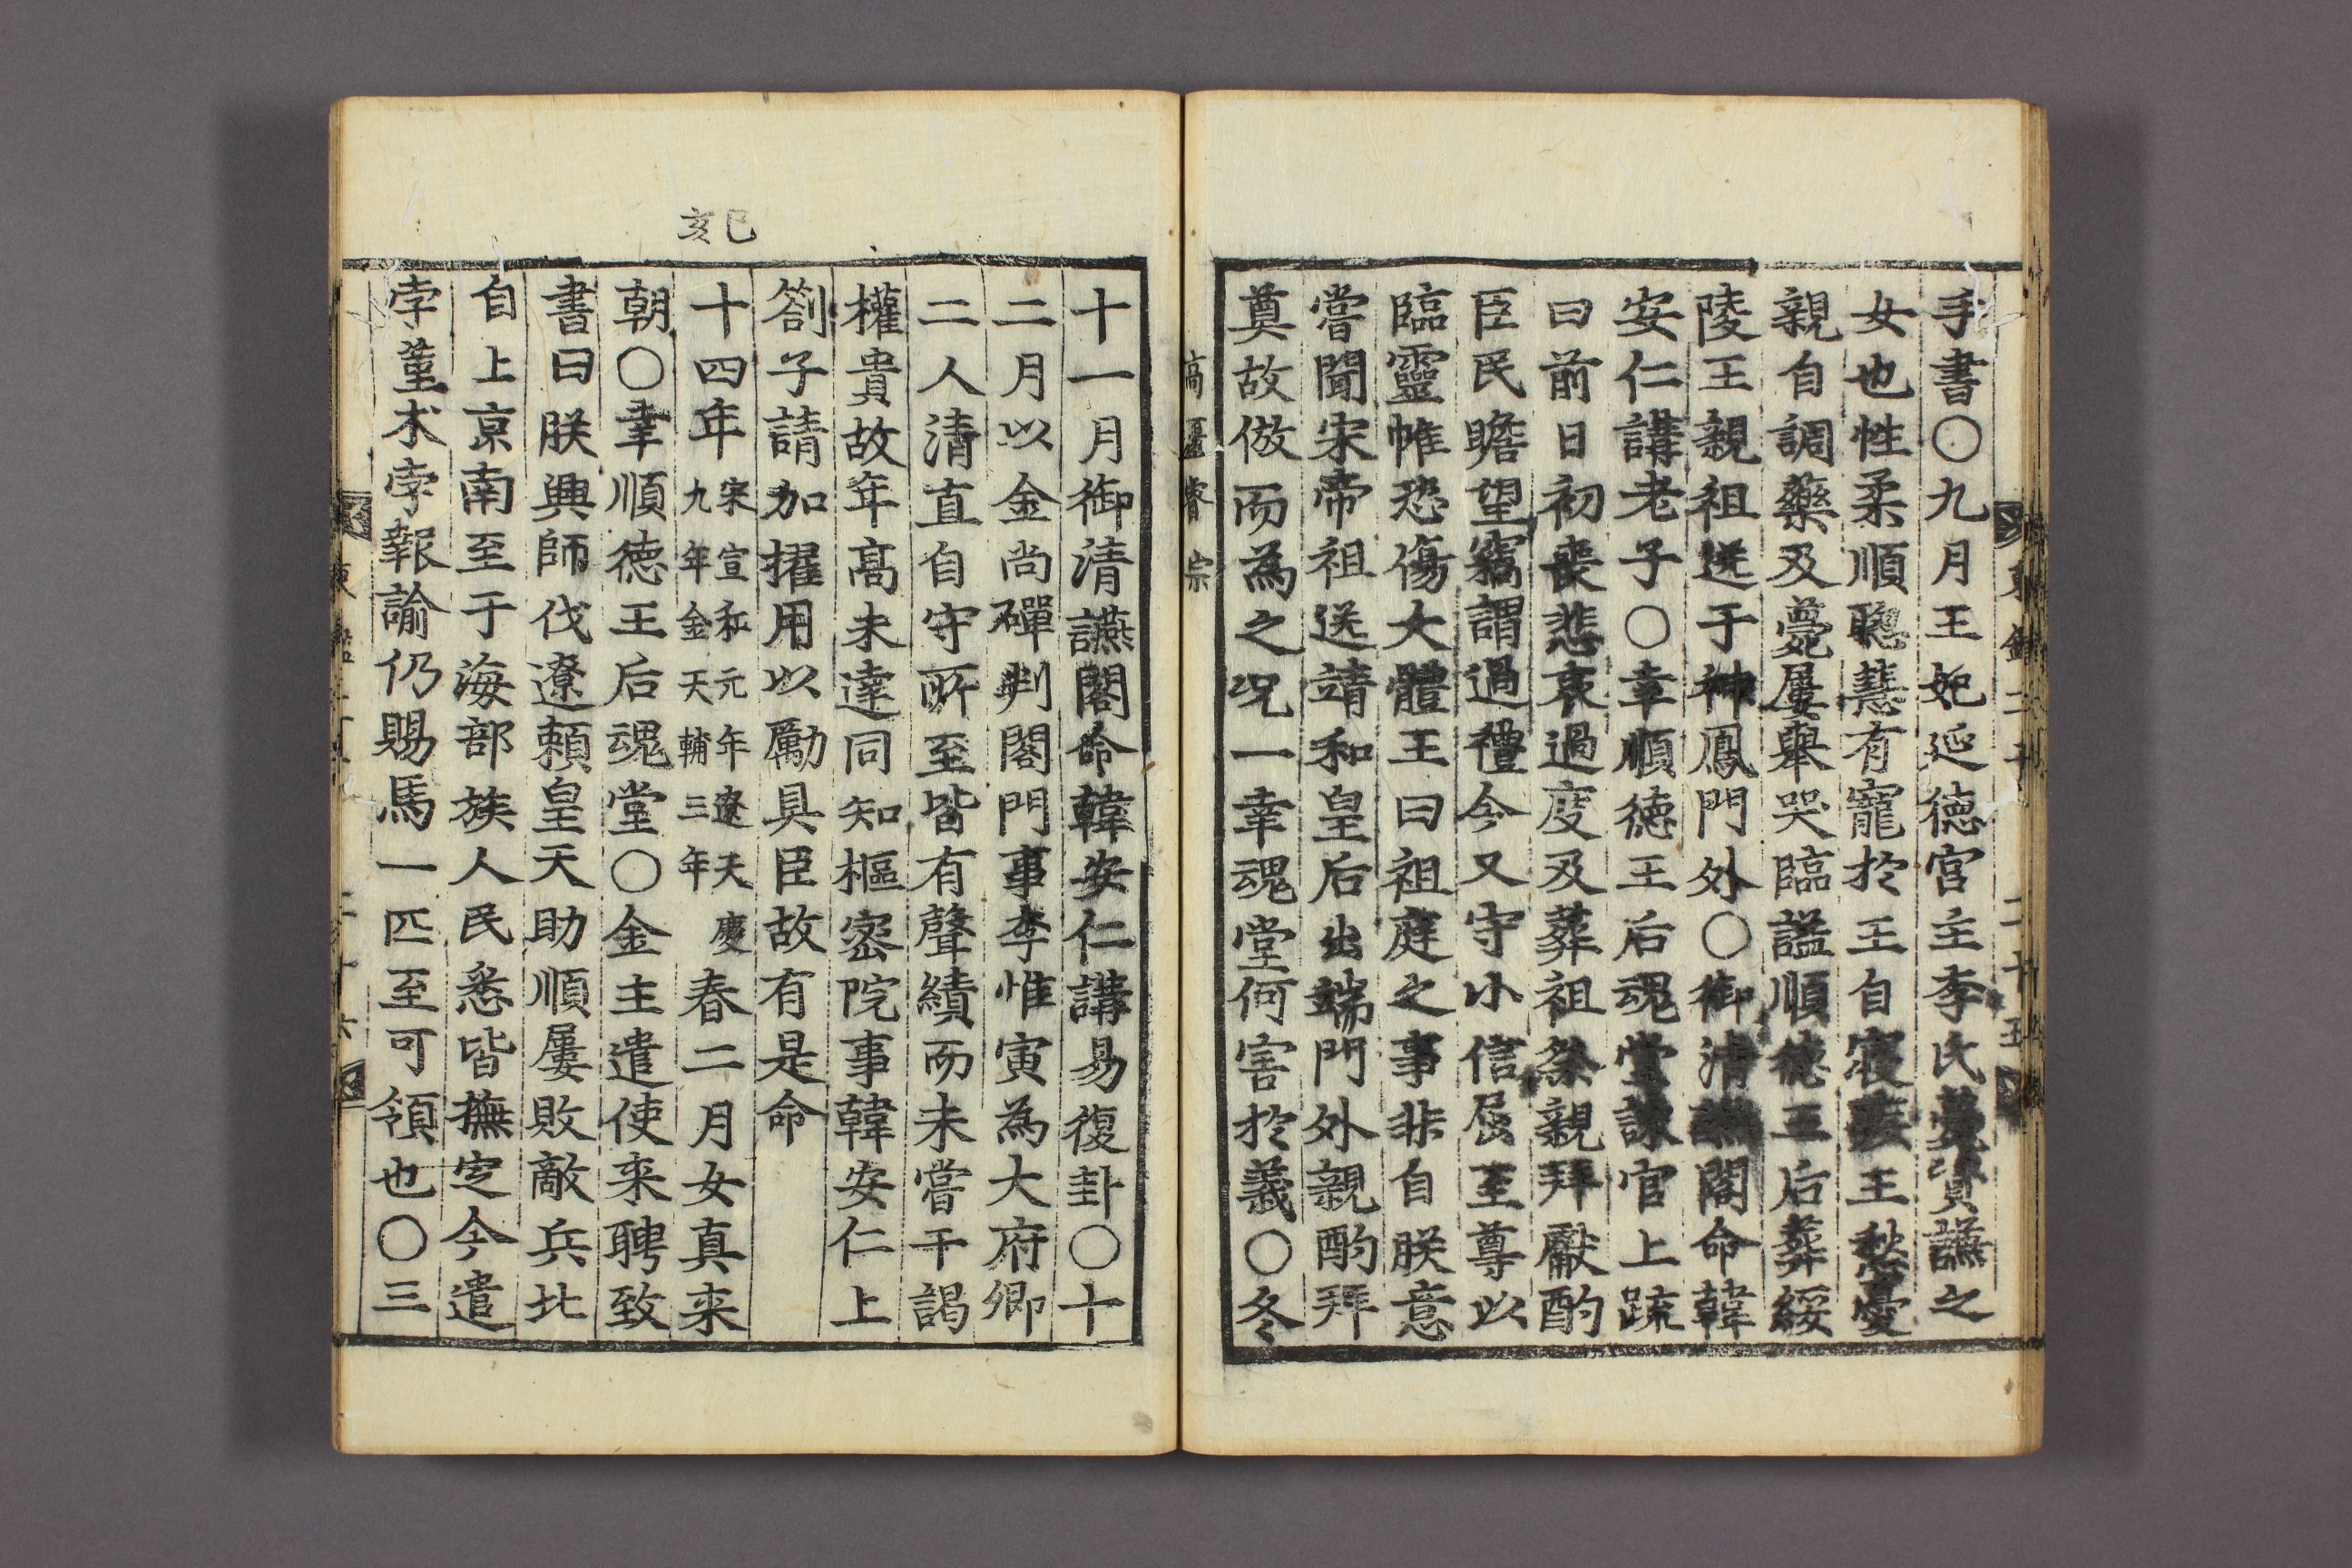 手書○九月王妃延德宮主李氏薨資謙之
女也性柔順聰慧有寵於王自寢疾王愁憂
親自調藥及薨屢擧哭臨謚順德王后葬綏
陵王親祖送于神鳳門外○御清讌閣命韓
安仁講老子○幸順德王后魂堂諫官上疏
曰前日初喪悲哀過度及葬祖祭親拜獻酌
臣民瞻望竊謂過禮今又守小信屈至尊以
臨靈帷恐傷大體王曰祖庭之事非自朕意
嘗聞宋帝祖送靖和皇后出端門外親酌拜
奠故倣而為之况一幸魂堂何害於義○冬
高麗睿宗
十一月御清讌閣命韓安仁講易復卦○十
二月以金尚磾判閣門事李惟寅為大府卿
二人清直自守所至皆有聲績而未嘗干謁
權貴故年高未達同知樞密院事韓安仁上
劄子請加擢用以勵具臣故有是命
己亥
十四年宋宣和元年遼天慶九年金天輔三年春二月女真来
朝○幸順德王后魂堂○金主遣使来聘致
書曰朕興師伐遼賴皇天助順屢敗敵兵北
自上京南至于海部族人民悉皆撫定今遣
孛菫术孛報諭仍賜馬一匹至可領也○三